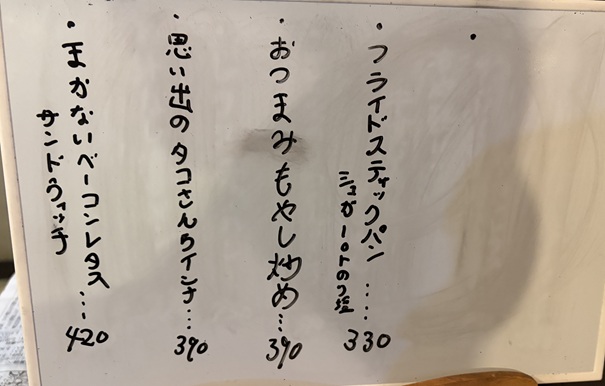 ・
・フライドスティックパン‥‥
シュガーorのり塩
330
・おつまみもやし炒め…
390
・思い出のタコさんウインナ…
390
・まかないベーコンレタス…
サンドウィッチ
420